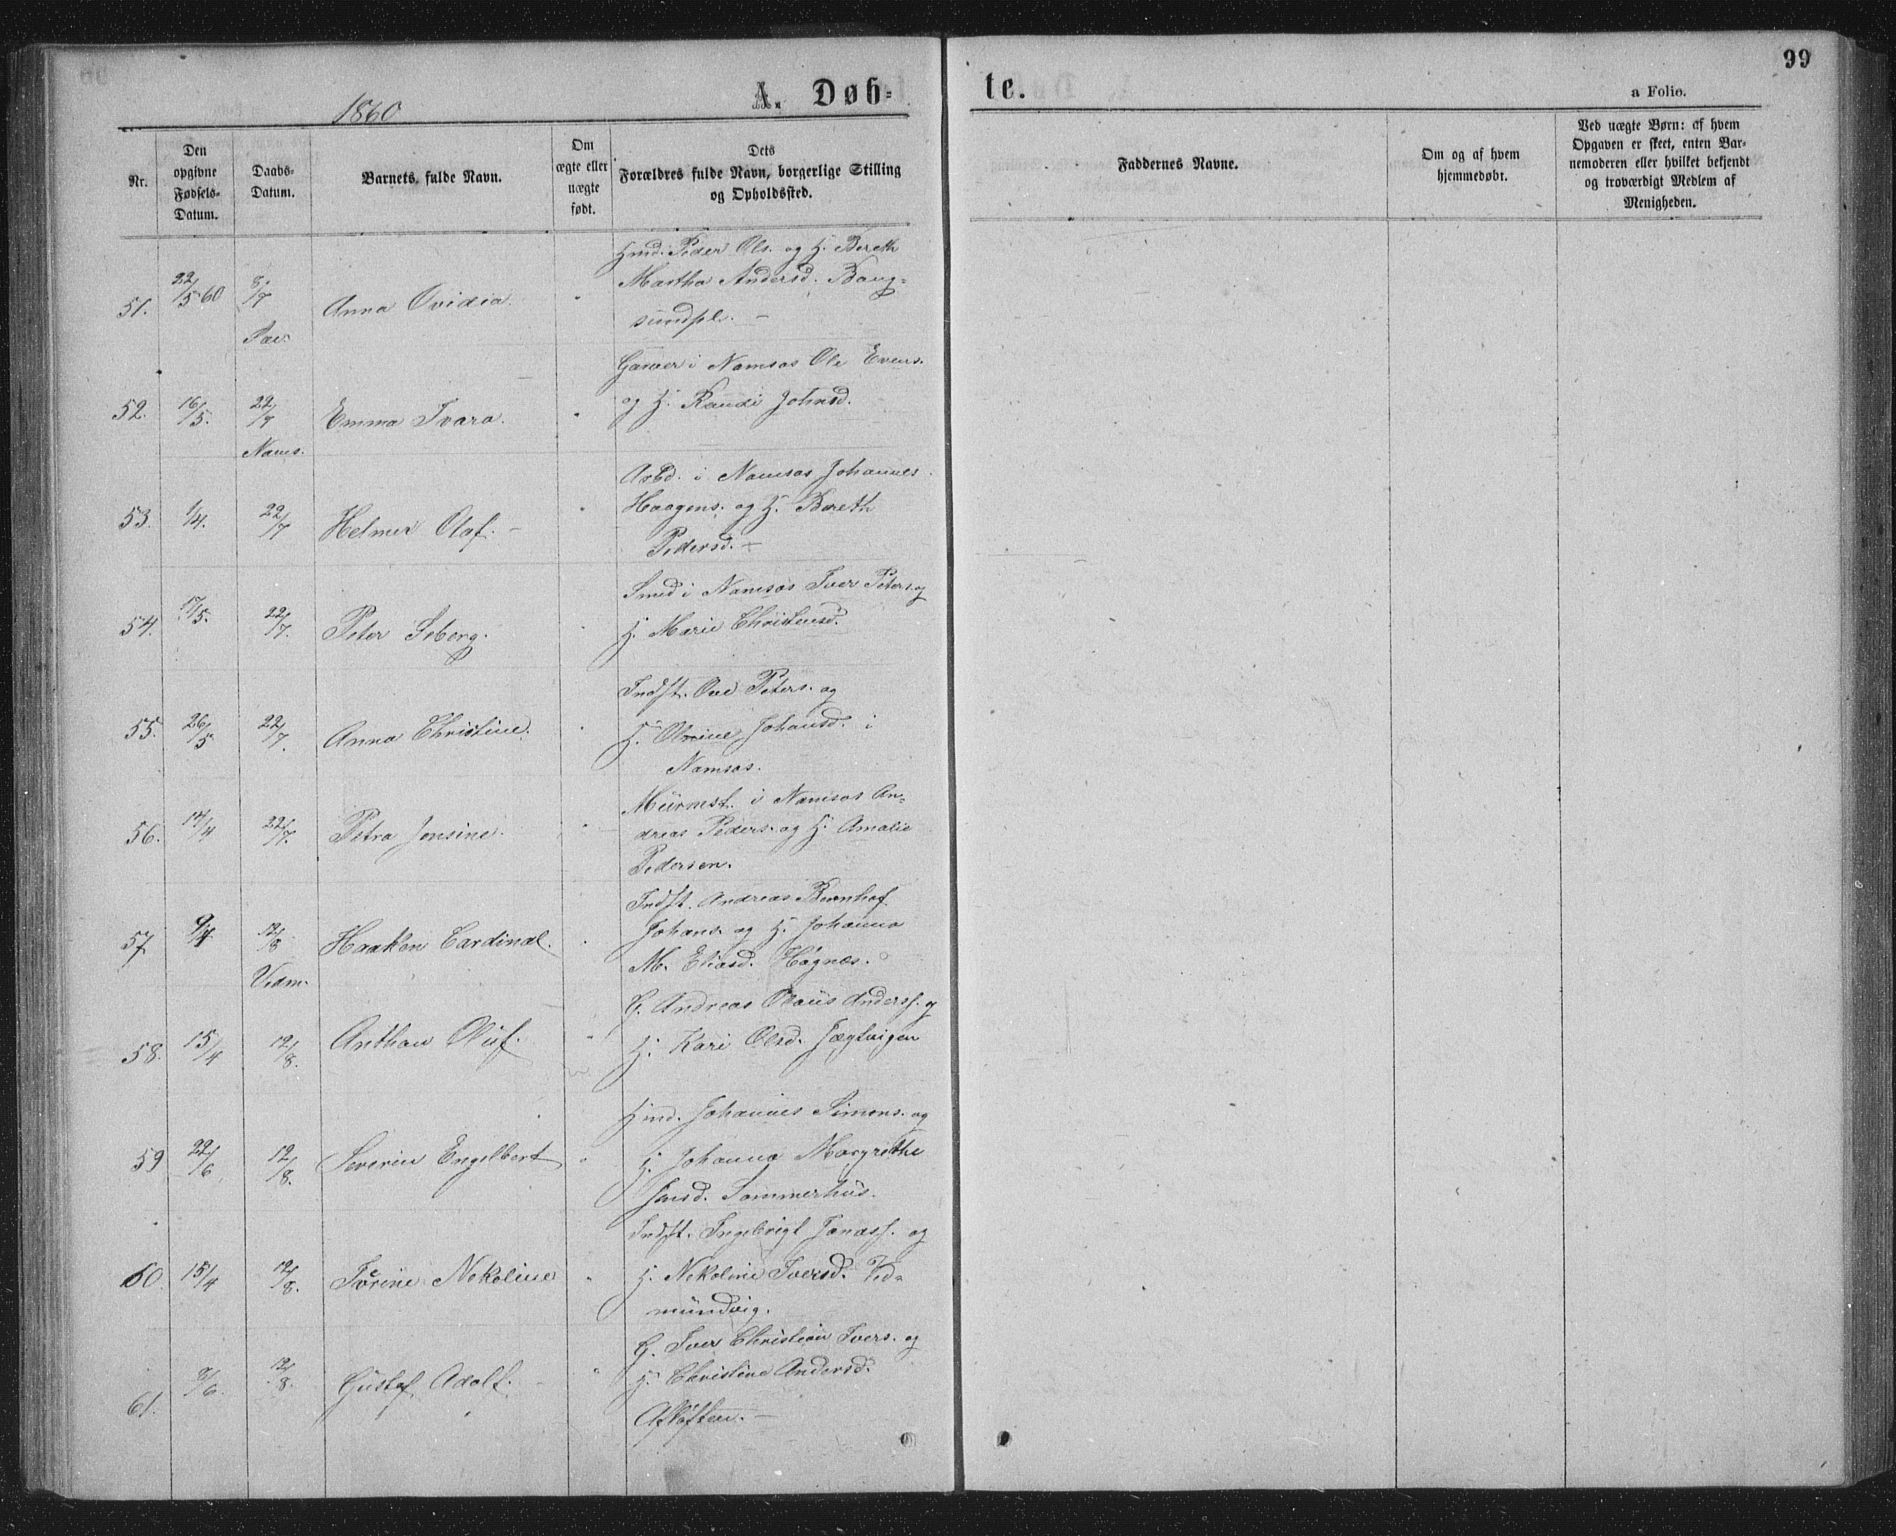 99
1860
A. Døb-
te.
a Folio.
Nr.
Den
opgivne
Fødsels-
Datum.
Daabs-
Datum.
Barnets fulde Navn.
Om
ægte eller
uægte
født.
Dets
Forældres fulde Navn, borgerlige Stilling
og Opholdssted.
Faddernes Navne.
Om og af hvem
hjemmedøbt.
Ved uægte Børn: af hvem
Opgaven er skeet, enten Bar-
nemoderen eller hvilket bekjendt
og troværdigt Medlem af
Menigheden.
Hmd. Peder Ols. og H. Bereth
Martha Andersd. Bang-
sundpl. -
51. 22/5 60 8/7 Anna Ovidia. "
Garver i Namsos Ole Evens.
og H. Randi Johnsd.
52. 16/5. 22/7 Emma Ivara. "
Nams.
Arbd. i Namsos Johannes
Haagens. og H. Bereth
Pedersd. -
53. 1/4. 22/7 Helmer Olaf. - "
Smed i Namsos Iver Peters. og
H. Marie Christensd.
54. 17/5. 22/7. Peter Seberg. "
Indst. Ove Peters. og
H. Johansd. i
Namsos.
55. 26/5 22/7. Anna Christine. "
Muurmst. i Namsos An-
dreas Peders. og H. Amalie
Pedersen.
56. 14/4 22/7. Petra Jensine. "
Indst. Andreas Bernhof
Johans. og H. Johanna
M. Eliasd. Høgnæs.
57 9/4 12/8 Haakon Cardinal. "
Vedm.
G. Andreas Olaus Anderss. og
H. Kari Olsd. Jægtvigen
58. 15/4 12/8. Anthon Oluf. "
Hmd. Johannes Simons. og
H. Johanna Margrethe
Jensd. Sommerhus.
59 22/6 12/8. Severin Engelbert "
Indst. Ingebrigt Jonass. og
H. Nekoline Iversd. Ved-
mundvig.
60. 15/4 12/8. Nekoline "
G. Iver Christian Ivers. og
H. Christine Andersd.
Afløften. -
61. 8/6. 12/8. Gustaf Adolf. - "